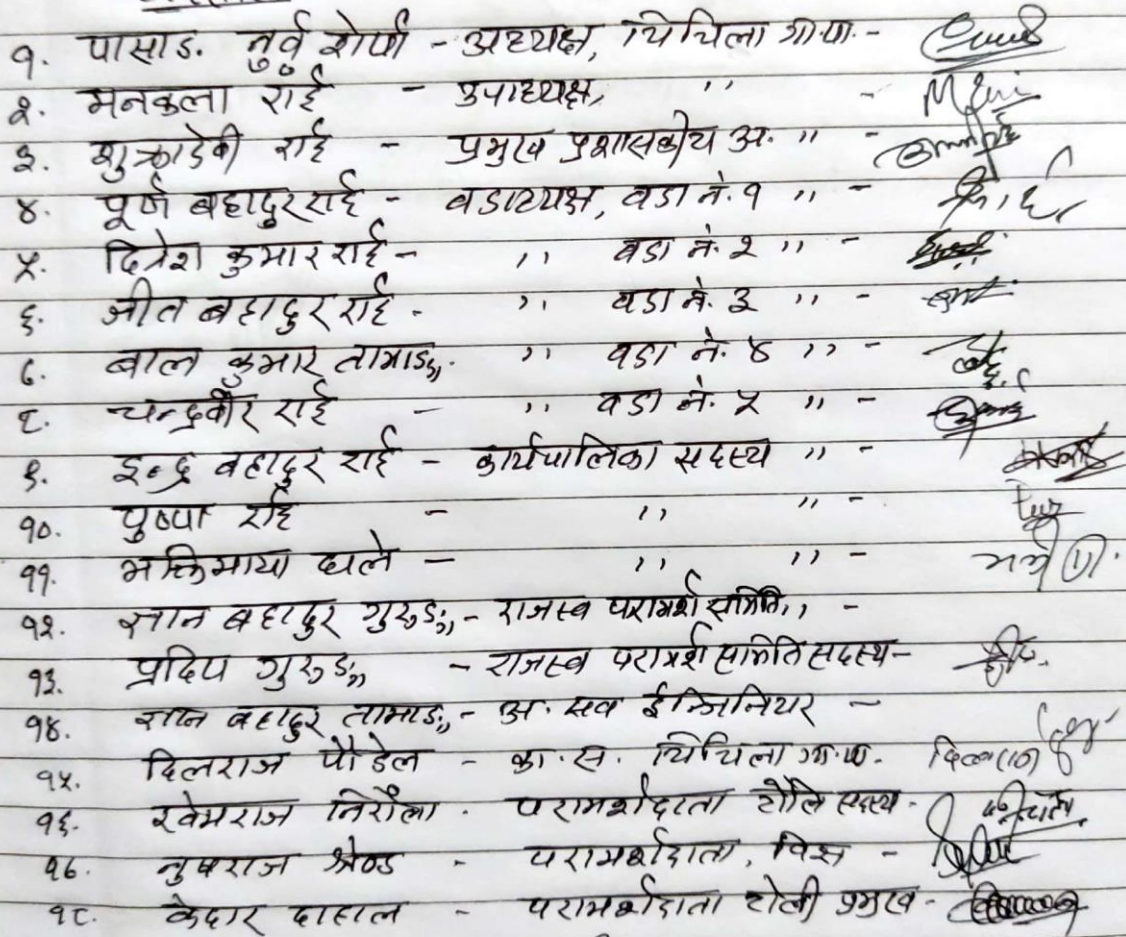 १. पासाङ नुर्वु शेर्पा - अध्यक्ष, चिचिला गा.पा. -
२. मनकला राई - उपाध्यक्ष, ,, -
३. शुक्रादेवी राई - प्रमुख प्रशासकीय अ. ,, -
४. पूर्ण बहादुर राई - वडाध्यक्ष, वडा नं. १ ,, -
५. दिनेश कुमार राई - ,, वडा नं. २ ,, -
६. जीत बहादुर राई - ,, वडा नं. ३ ,, -
७. बाल कुमार तामाङ ,, वडा नं. ४ ,, -
८. चन्द्रवीर राई - ,, वडा नं. ५ ,, -
९. इन्द्र बहादुर राई - कार्यपालिका सदस्य ,, -
१०. पुष्पा राई - ,, ,, -
११. भक्तिमाया घले - ,, ,, -
१२. ज्ञान बहादुर गुरुङ - राजस्व परामर्श समिति ,, -
१३. प्रदिप गुरुङ - राजस्व परामर्श समिति सदस्य -
१४. ज्ञान बहादुर तामाङ - अ. सव ईन्जिनियर -
१५. दिलराज पौडेल - का.स. चिचिला गा.पा.
१६. खेमराज निरौला - परामर्शदाता टोलि सदस्य -
१७. नुपराज श्रेष्ठ - परामर्शदाता, विज्ञ -
१८. केदार दाहाल - परामर्शदाता टोली प्रमुख -